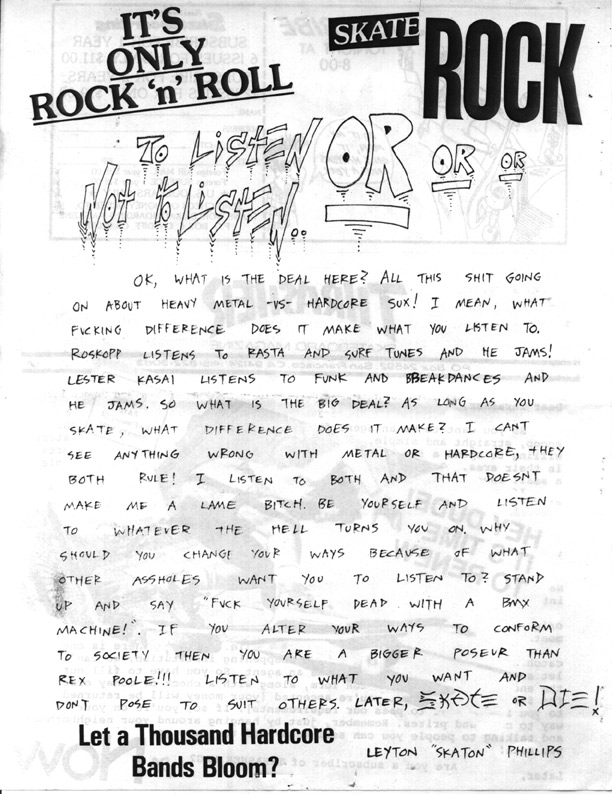 IT'S
ONLY
ROCK 'n' ROLL
SKATE ROCK
TO LISTEN OR OR OR
NOT TO LISTEN..
OK, WHAT IS THE DEAL HERE? ALL THIS SHIT GOING
ON ABOUT HEAVY METAL -VS- HARDCORE SUX! I MEAN, WHAT
FUCKING DIFFERENCE DOES IT MAKE WHAT YOU LISTEN TO.
ROSKOPP LISTENS TO RASTA AND SURF TUNES AND HE JAMS!
LESTER KASAI LISTENS TO FUNK AND BREAKDANCES AND
HE JAMS. SO WHAT IS THE BIG DEAL? AS LONG AS YOU
SKATE, WHAT DIFFERENCE DOES IT MAKE? I CANT
SEE ANYTHING WRONG WITH METAL OR HARDCORE, THEY
BOTH RULE! I LISTEN TO BOTH AND THAT DOESNT
MAKE ME A LAME BITCH. BE YOURSELF AND LISTEN
TO WHATEVER THE HELL TURNS YOU ON. WHY
SHOULD YOU CHANGE YOUR WAYS BECAUSE OF WHAT
OTHER ASSHOLES WANT YOU TO LISTEN TO? STAND
UP AND SAY "FUCK YOURSELF DEAD WITH A BMX
MACHINE!". IF YOU ALTER YOUR WAYS TO CONFORM
TO SOCIETY THEN YOU ARE A BIGGER POSEUR THAN
REX POOLE!!! LISTEN TO WHAT YOU WANT AND
DONT POSE TO SUIT OTHERS. LATER, SKATE OR DIE!
Let a Thousand Hardcore
Bands Bloom?
LEYTON "SKATON" PHILLIPS